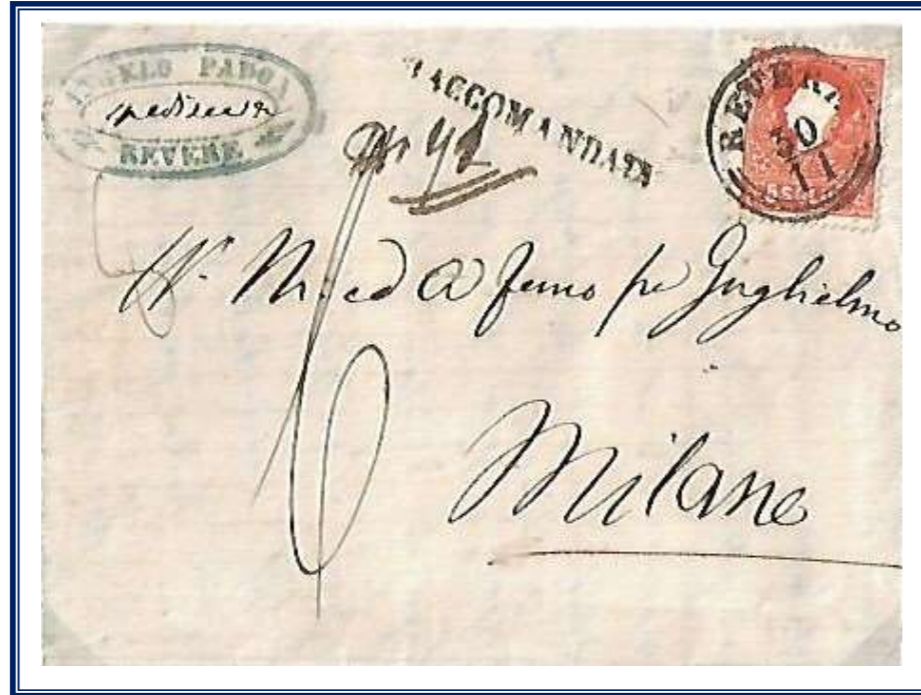 ANGELO PADOA
REVERE
RACCOMANDATA
N 42
REVERE
30
11
5 SOLDI
M. ed A fermo per Guglielmo
Milano